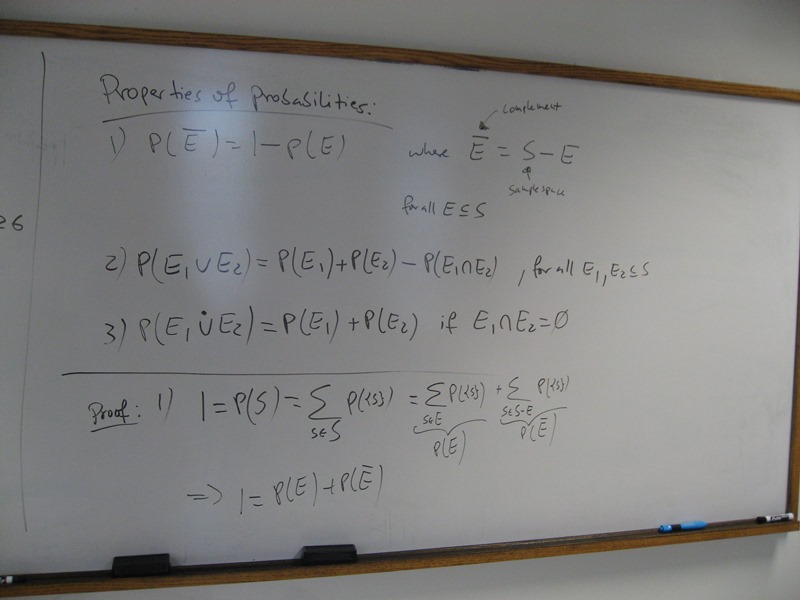 Properties of probabilities:
1) P(E̅) = 1 - P(E)
where E̅ = S - E
complement
sample space
for all E ⊆ S
≥6
2) P(E₁ ∪ E₂) = P(E₁) + P(E₂) - P(E₁ ∩ E₂) , for all E₁, E₂ ⊆ S
3) P(E₁ ∪̇ E₂) = P(E₁) + P(E₂) if E₁ ∩ E₂ = ∅
Proof: 1) 1 = P(S) = ∑ P({s}) = ∑ P({s}) + ∑ P({s})
s∈S s∈E s∈S-E
P(E) P(E̅)
=> 1 = P(E) + P(E̅)